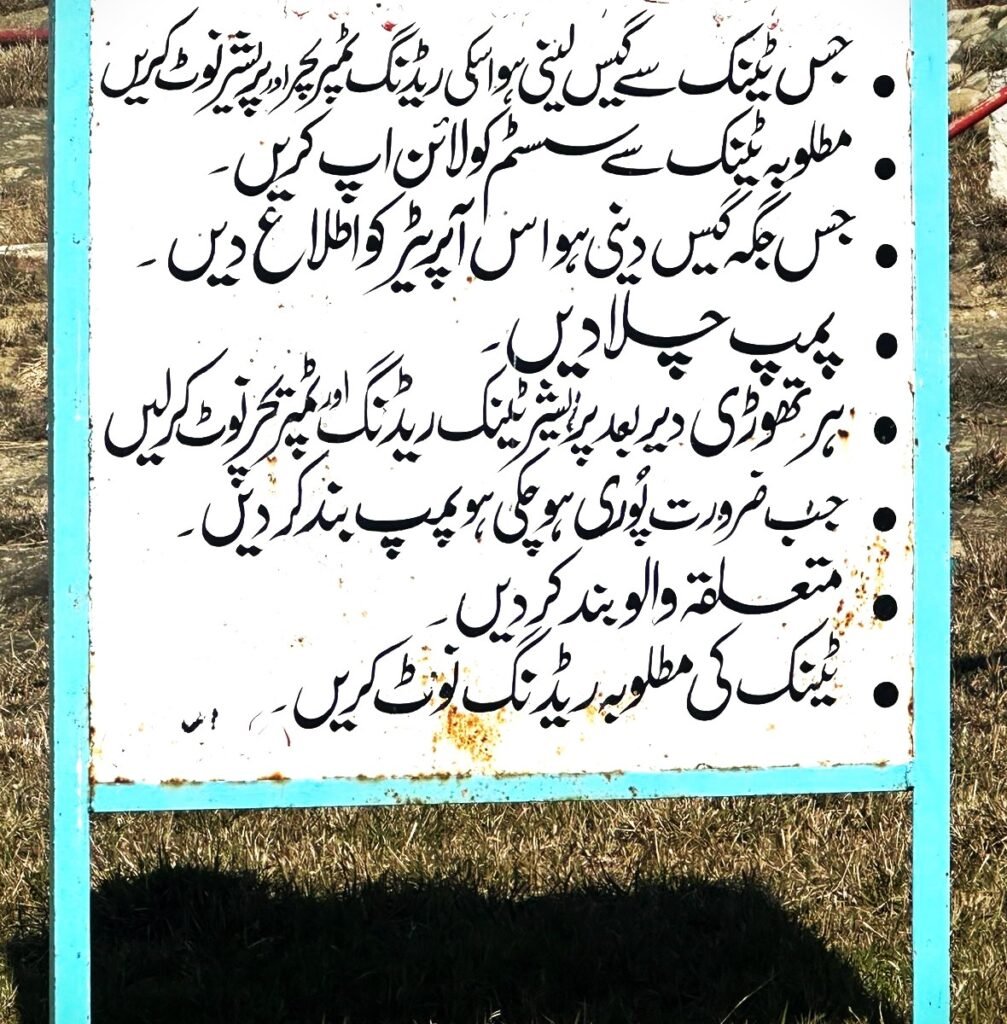 • جس ٹینک سے گیس لینی ہو اسکی ریڈنگ ٹمپریچر اور پریشر نوٹ کریں
• مطلوبہ ٹینک سے سسٹم کو لائن اپ کریں۔
• جس جگہ گیس دینی ہو اس آپریٹر کو اطلاع دیں ۔
• پمپ چلا دیں۔
• ہر تھوڑی دیر بعد پریشر ٹینک ریڈنگ اور ٹمپریچر نوٹ کرلیں
• جب ضرورت پُوری ہو چکی ہو پمپ بند کر دیں۔
• متعلقہ والو بند کر دیں۔
• ٹینک کی مطلوبہ ریڈنگ نوٹ کریں۔